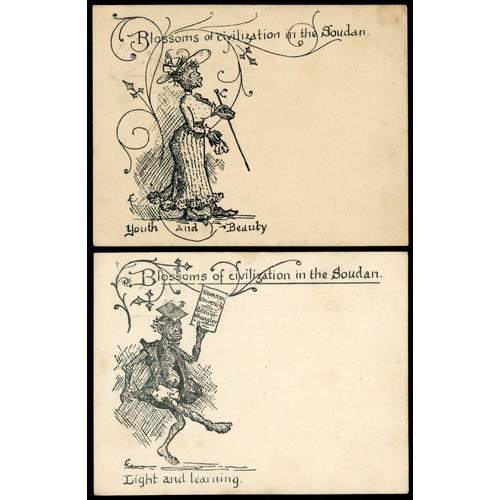 Blossoms of civilization in the Soudan.
Youth and Beauty
Blossoms of civilization in the Soudan.
University
Light and learning.